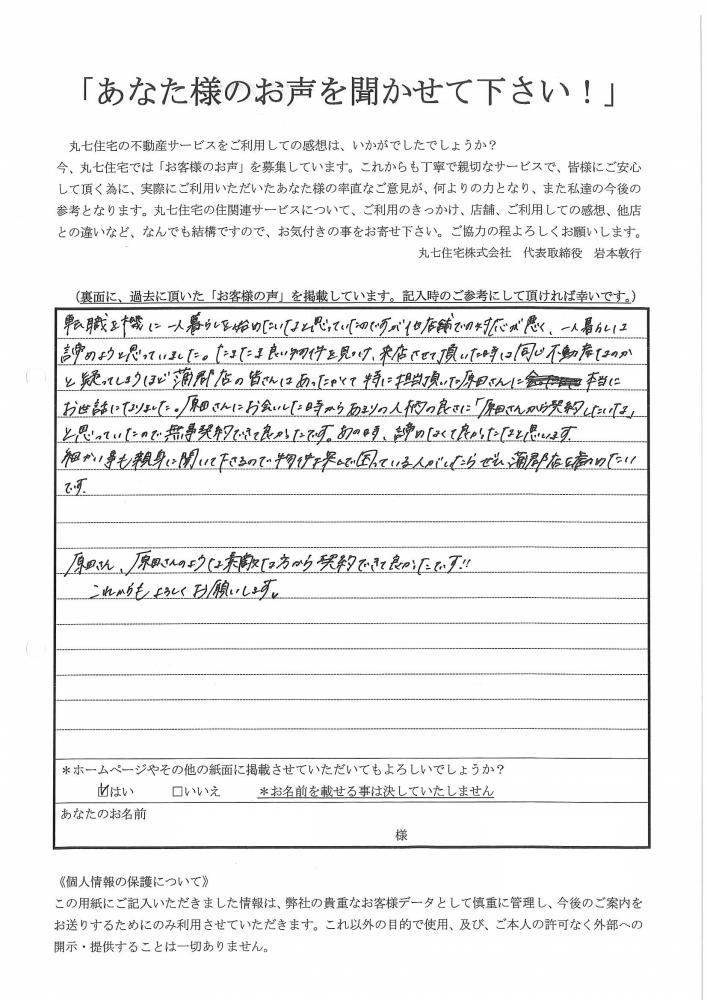 「あなた様のお声を聞かせて下さい！」
丸七住宅の不動産サービスをご利用しての感想は、いかがでしたでしょうか？
今、丸七住宅では「お客様のお声」を募集しています。これからも丁寧で親切なサービスで、皆様にご安心
して頂く為に、実際にご利用いただいたあなた様の率直なご意見が、何よりの力となり、また私達の今後の
参考となります。丸七住宅の住関連サービスについて、ご利用のきっかけ、店舗、ご利用しての感想、他店
との違いなど、なんでも結構ですので、お気付きの事をお寄せ下さい。ご協力の程よろしくお願いします。
丸七住宅株式会社　代表取締役　岩本敦行
（裏面に、過去に頂いた「お客様の声」を掲載しています。記入時のご参考にして頂ければ幸いです。）
転職を機に一人暮らしを始めたいなと思っていたのですが他店舗での対応が悪く、一人暮らしは
諦めようと思っていました。たまたま良い物件を見つけ、来店させて頂いた時は同じ不動産なのか
と疑ってしまうほど蒲郡店の皆さんはあったかくて特に担当頂いた原田さんに本当に
お世話になりました。原田さんにお会いした時からあまりの人柄の良さに「原田さんから契約したいな」
と思っていたので無事契約できて良かったです。あの時、諦めなくて良かったなと思います。
細かい事も親身に聞いて下さるので物件探しで困っている人がいたらぜひ蒲郡店を薦めたい
です。
原田さん、原田さんのような素敵な方から契約できて良かったです!!
これからもよろしくお願いします。
＊ホームページやその他の紙面に掲載させていただいてもよろしいでしょうか？
☑はい　□いいえ　＊お名前を載せる事は決していたしません
あなたのお名前
様
《個人情報の保護について》
この用紙にご記入いただきました情報は、弊社の貴重なお客様データとして慎重に管理し、今後のご案内を
お送りするためにのみ利用させていただきます。これ以外の目的で使用、及び、ご本人の許可なく外部への
開示・提供することは一切ありません。